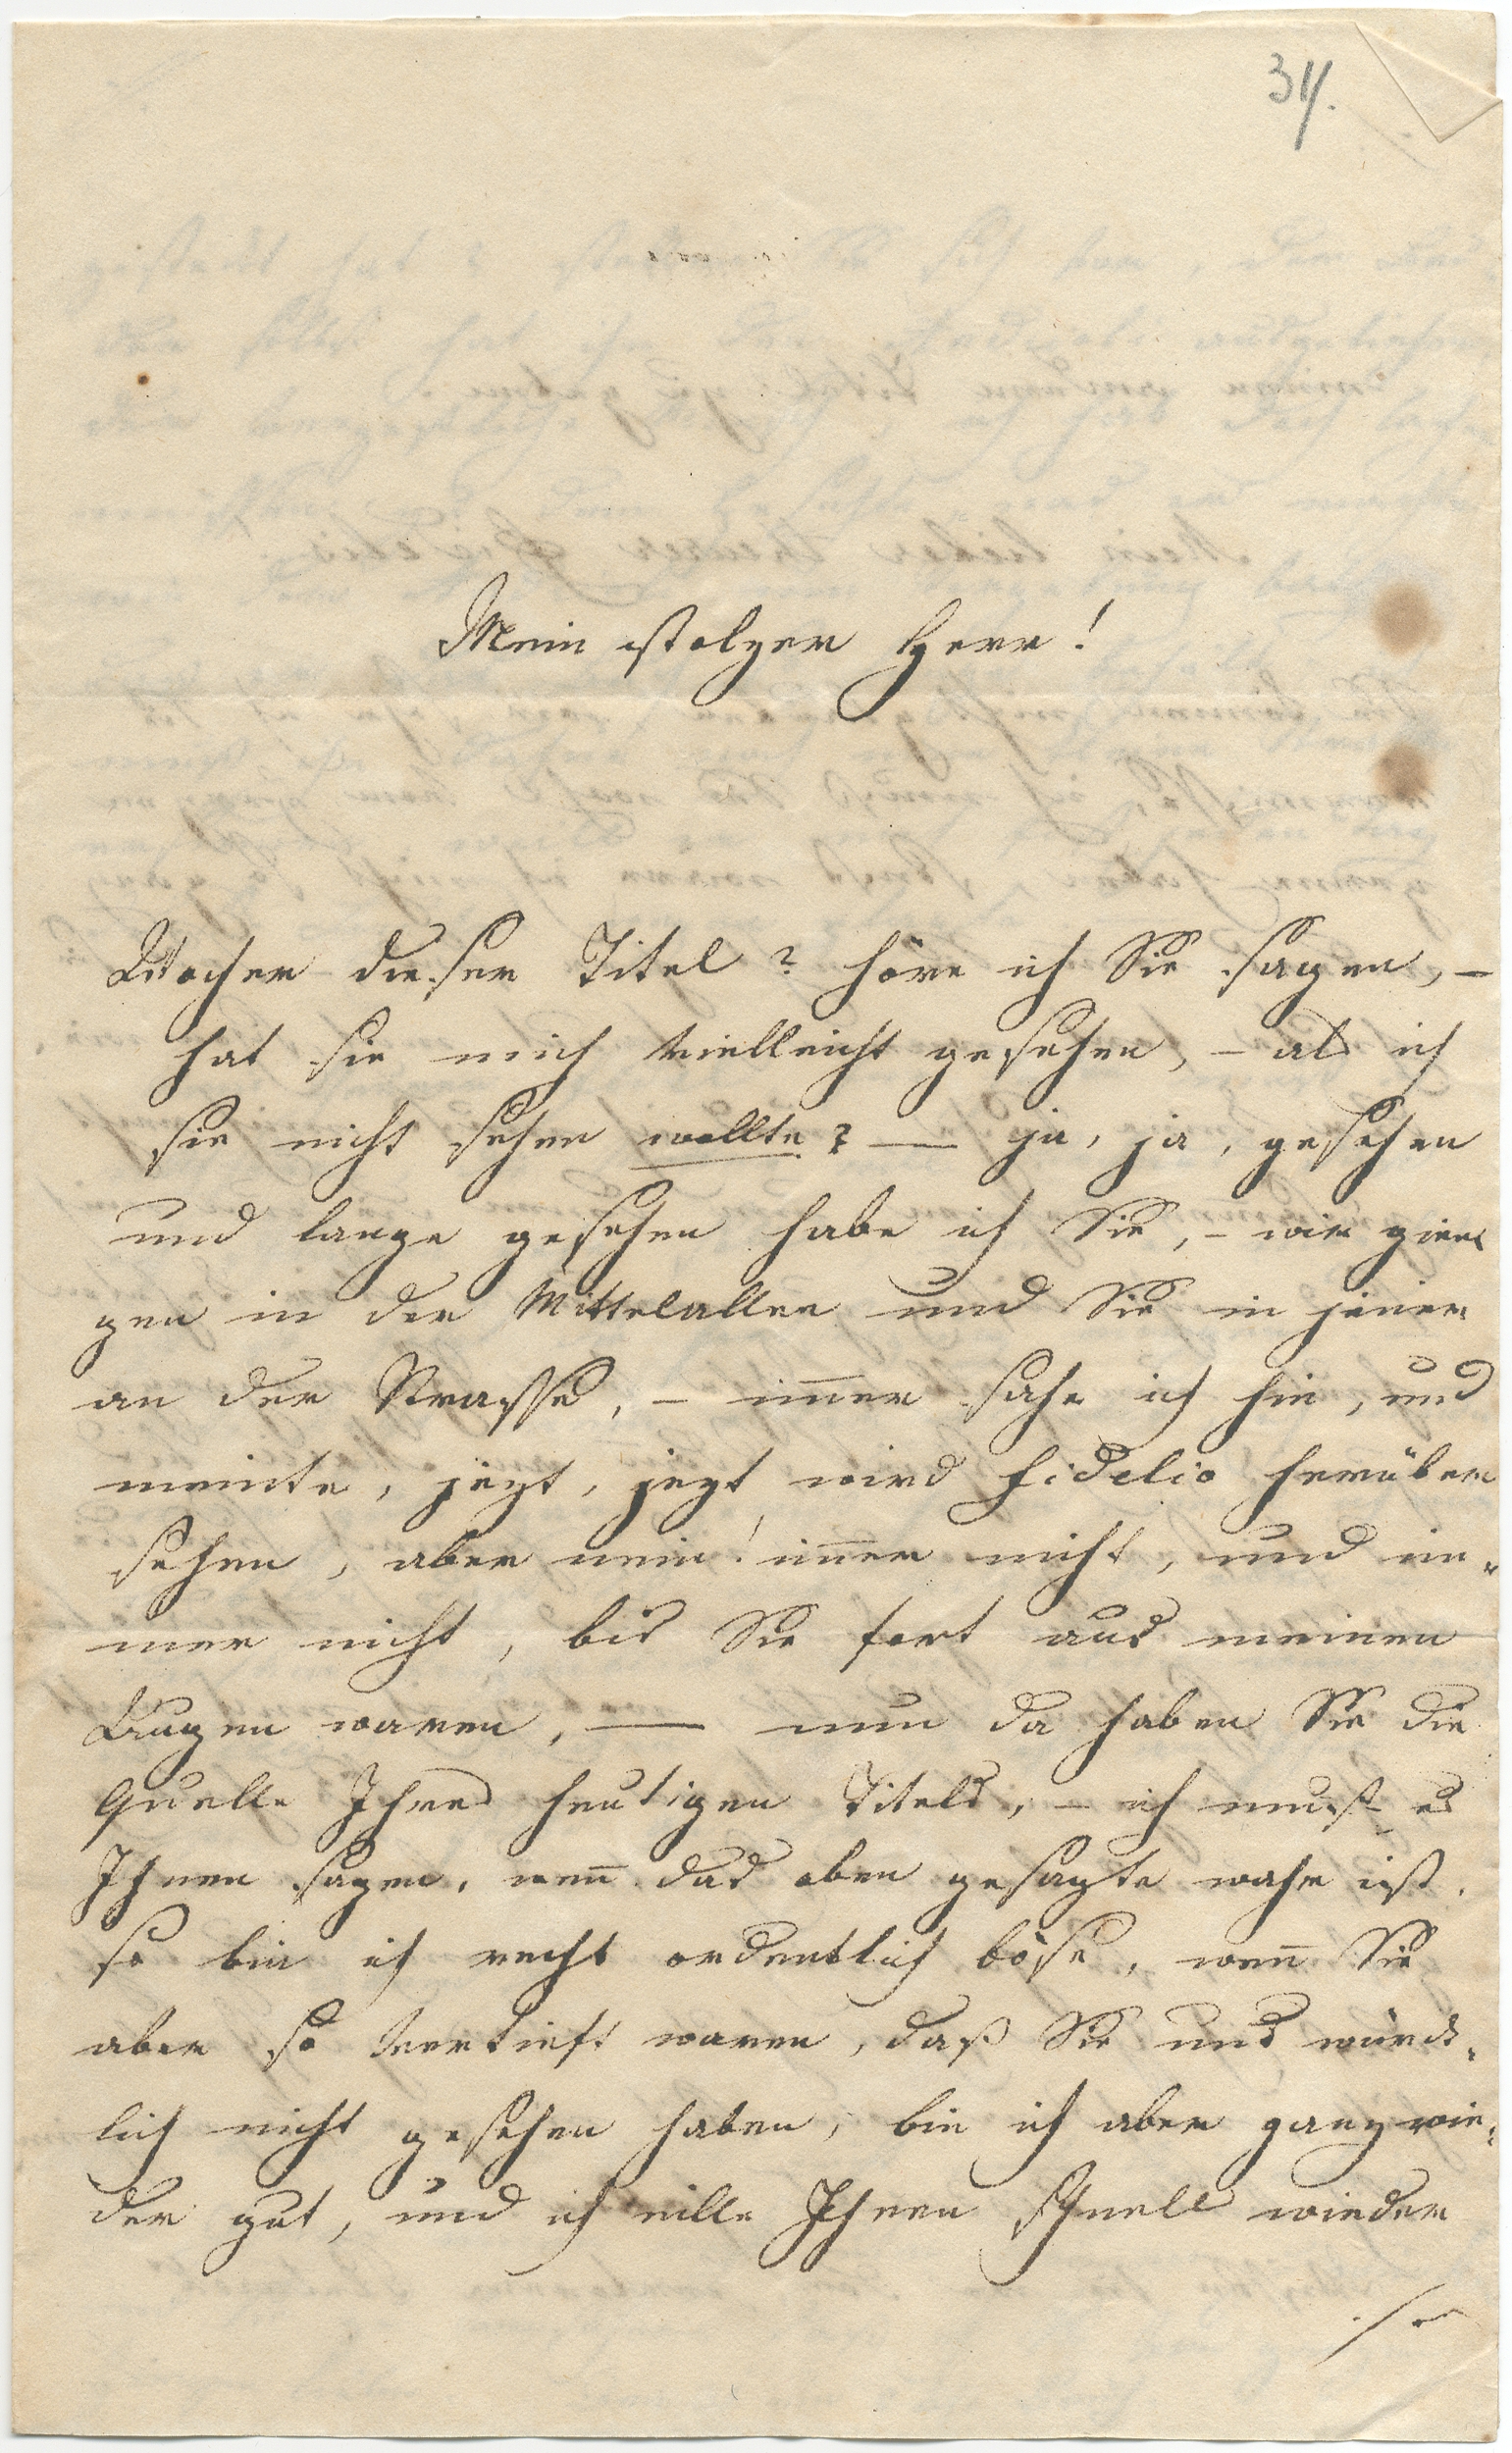 34.
Mein stolzer Herr!
Woher dieser Titel? höre ich Sie sagen, –
hat sie mich vielleicht gesehen, – als ich
sie nicht sehen wollte? — ja, ja, gesehen
und lange gesehen habe ich Sie, – wir gien
gen in der Mittelallee und Sie in jener
an der Strasse, – im̅er sahe ich hin, und
meinte, jezt, jezt wird Fidelio herüber
sehen, aber nein! im̅er nicht, und im-
mer nicht, bis Sie fort aus meinen
Augen waren, — nun da haben Sie die
Quelle Ihres heutigen Titels, – ich muß es
Ihnen sagen, wen̅ das oben gesagte wahr ist,
so bin ich recht ordentlich böse, wen̅ Sie
aber so vertieft waren, daß Sie uns würck-
lich nicht gesehen haben, bin ich aber ganz wie-
der gut, und ich eille Ihnen schnell wieder